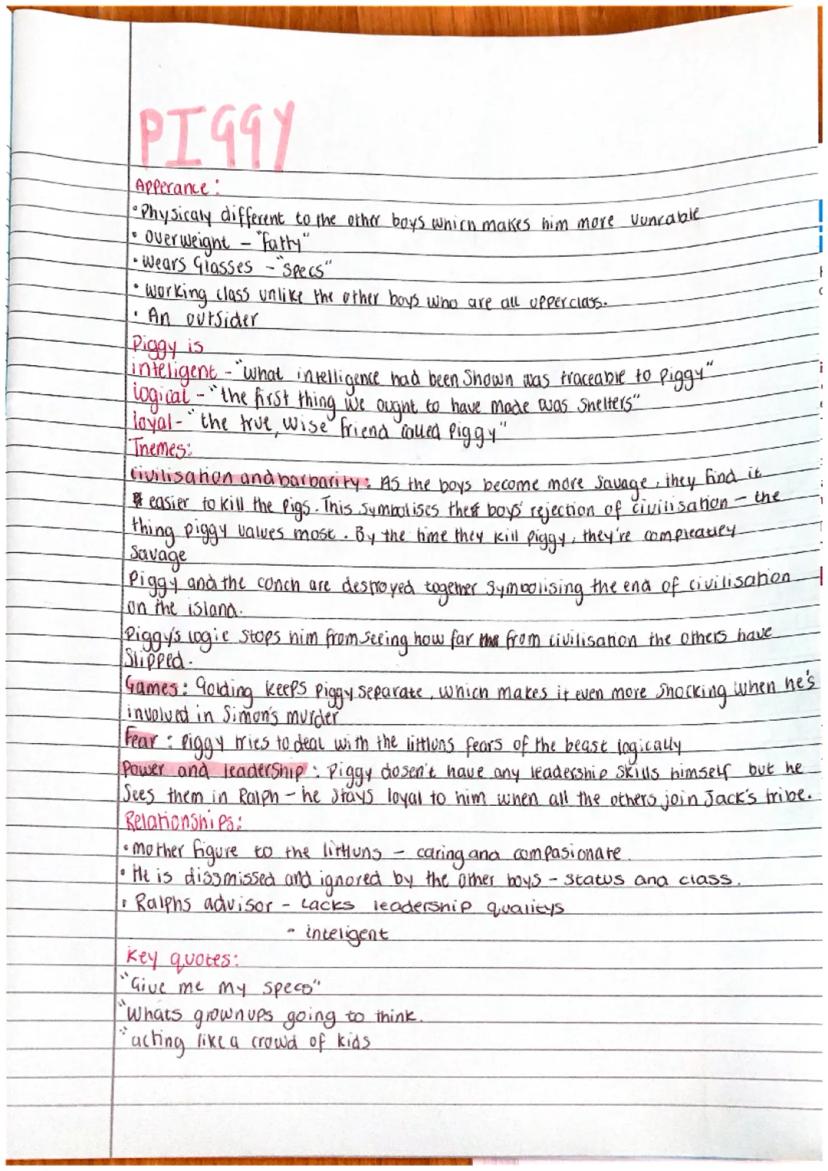 PIGGY
Apperance:
• Physicaly different to the other boys which makes him more vunrable
• overweight - "fatty"
• wears Glasses - "specs"
• working class unlike the other boys who are all upperclass.
• An outsider
Piggy is
inteligent - "what intelligence had been shown was traceable to Piggy"
logical - "the first thing we ought to have made was shelters"
loyal - "the true, wise friend called Piggy"
Themes:
civilisation and barbarity: As the boys become more savage, they find it
easier to kill the pigs. This symbolises the boys' rejection of civilisation - the
thing piggy values most. By the time they kill Piggy, they're compleatley
savage
Piggy and the conch are destroyed together symbolising the end of civilisation
on the island.
Piggy's logic stops him from seeing how far from civilisation the others have
slipped.
Games: Golding keeps Piggy separate, which makes it even more shocking when he's
involved in Simon's murder
Fear: Piggy tries to deal with the littluns fears of the beast logically
Power and leadership: Piggy dosen't have any leadership skills himself but he
sees them in Ralph - he stays loyal to him when all the others join Jack's tribe.
Relationships:
• mother figure to the littluns - caring and compasionate.
• He is dissmissed and ignored by the other boys - status and class.
• Ralphs advisor - Lacks leadership qualitys
- inteligent
Key quotes:
"Give me my specs"
"Whats grownups going to think.
"acting like a crowd of kids